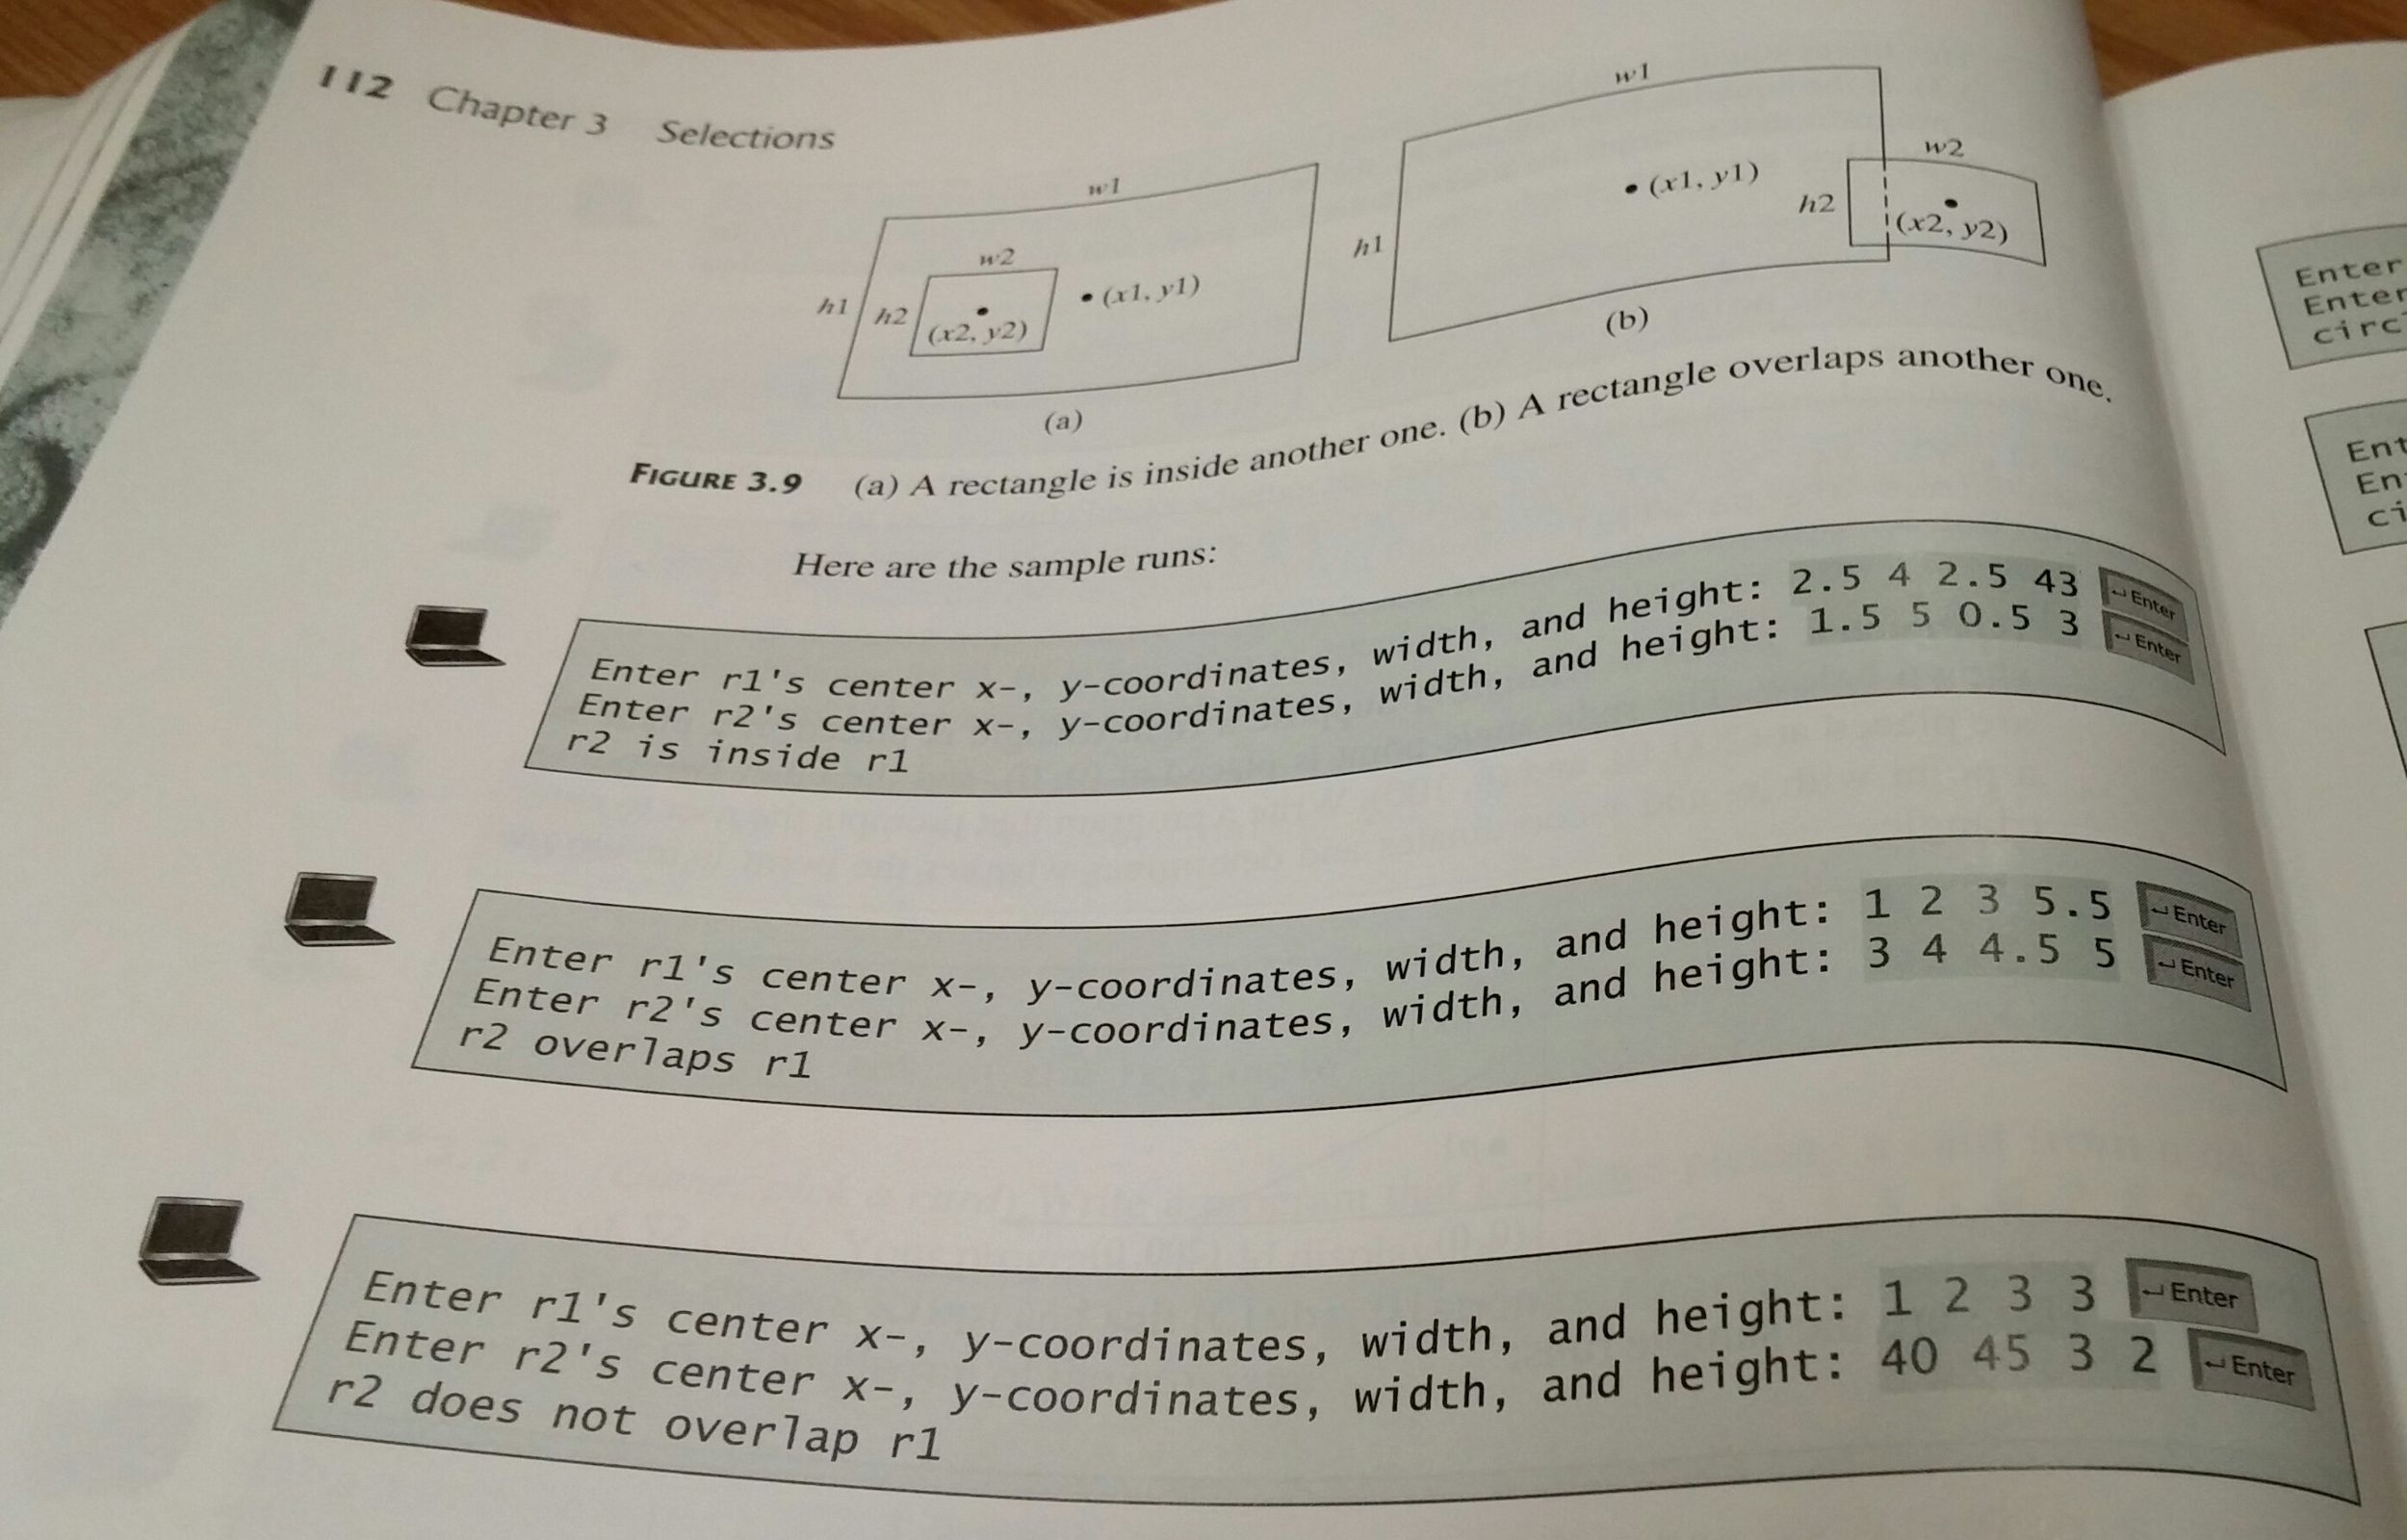 112 Chapter 3 Selections
w1
w2
h1 h2 (x2, y2) • (x1, y1)
(a)
w1
w2
• (x1, y1)
h1
h2
(x2, y2)
(b)
FIGURE 3.9 (a) A rectangle is inside another one. (b) A rectangle overlaps another one.
Here are the sample runs:
Enter r1's center x-, y-coordinates, width, and height: 2.5 4 2.5 43 ↵Enter
Enter r2's center x-, y-coordinates, width, and height: 1.5 5 0.5 3 ↵Enter
r2 is inside r1
Enter r1's center x-, y-coordinates, width, and height: 1 2 3 5.5 ↵Enter
Enter r2's center x-, y-coordinates, width, and height: 3 4 4.5 5 ↵Enter
r2 overlaps r1
Enter r1's center x-, y-coordinates, width, and height: 1 2 3 3 ↵Enter
Enter r2's center x-, y-coordinates, width, and height: 40 45 3 2 ↵Enter
r2 does not overlap r1
Enter
Enter